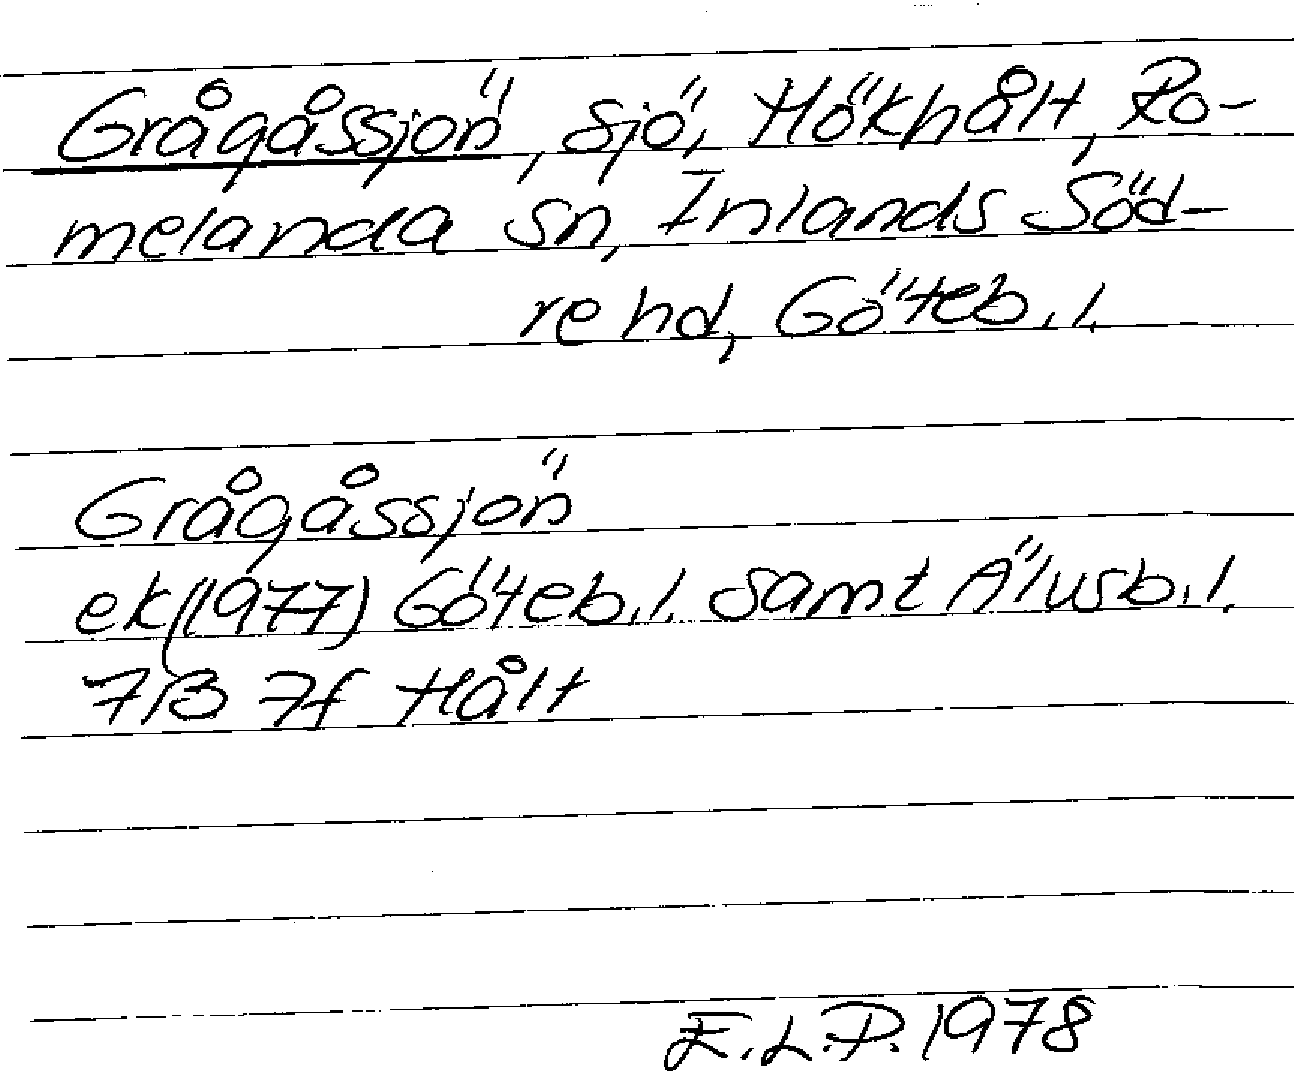 Grågåssjön, sjö, Hökhålt, Ro-
melanda sn, Inlands Söd-
re hd, Göteb. l.
Grågåssjön
ek (1977) Göteb. l. samt Älvsb. l.
7B 7f Hålt
E.L.P. 1978